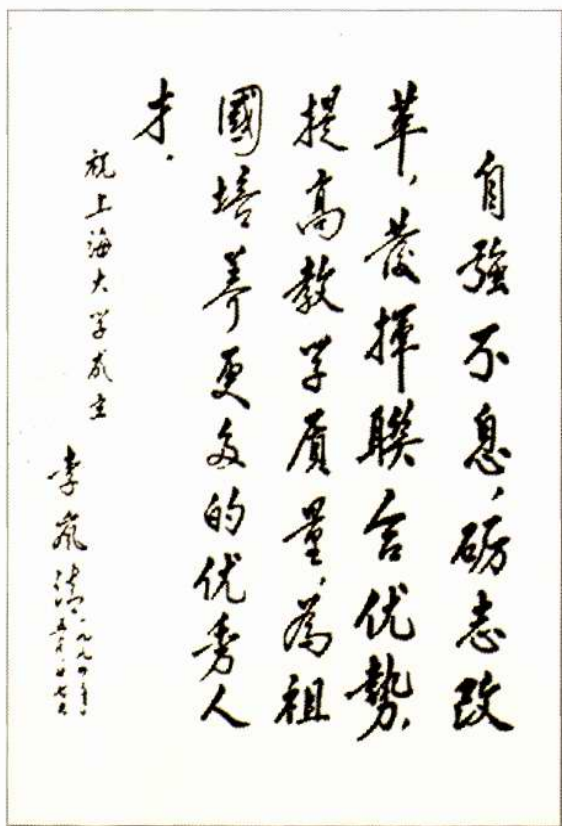 自強不息，砺志改
革，發揮聯合优勢，
提高教学质量，為祖
國培养更多的优秀人
才．
祝上海大学成立
李岚清
一九九四年
五月